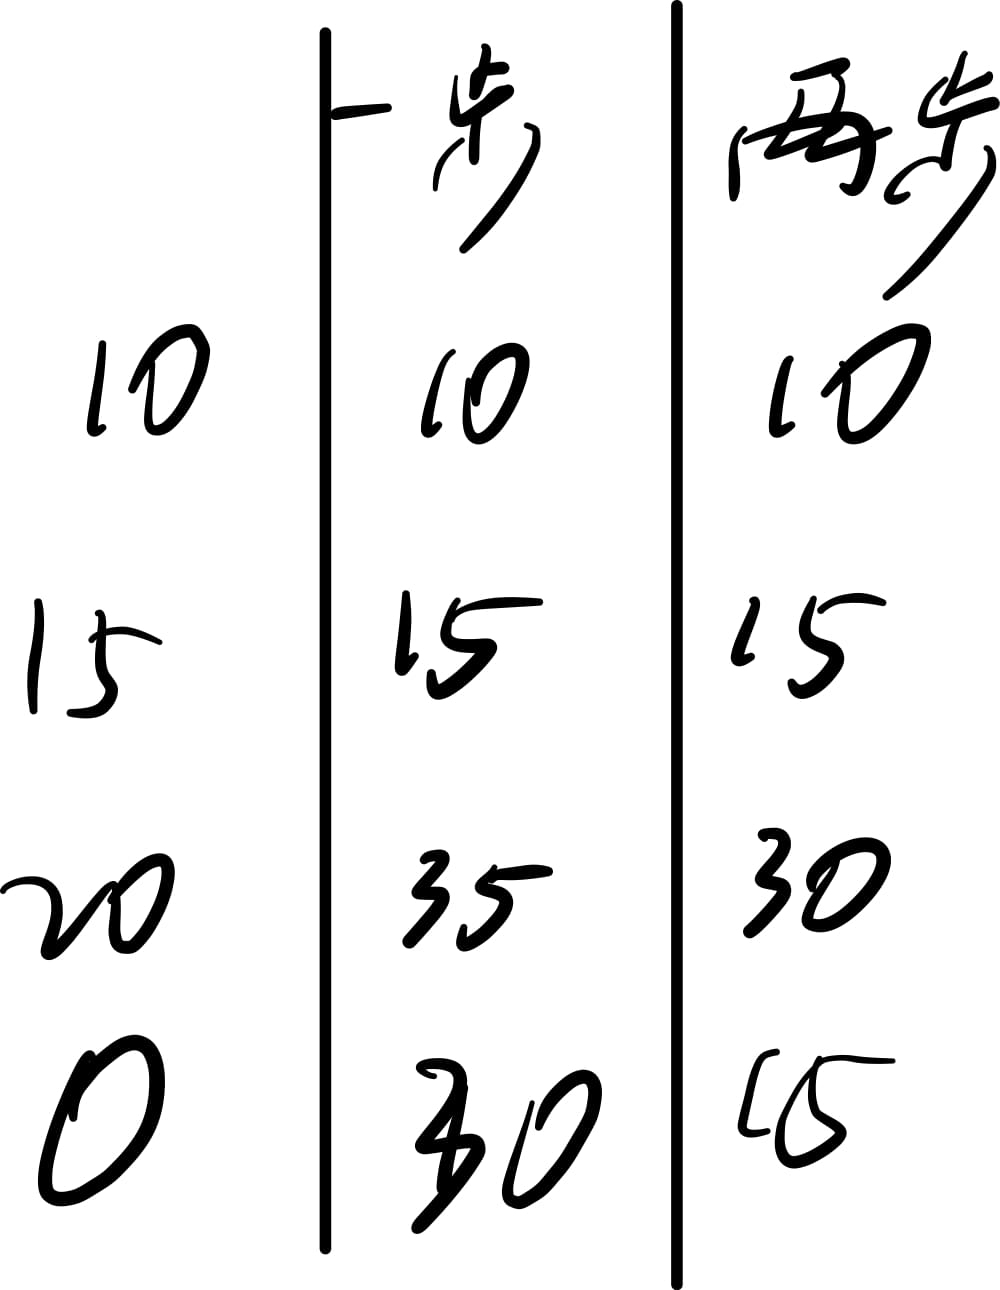 一步 两步
10 10 10
15 15 15
20 35 30
0 30 15